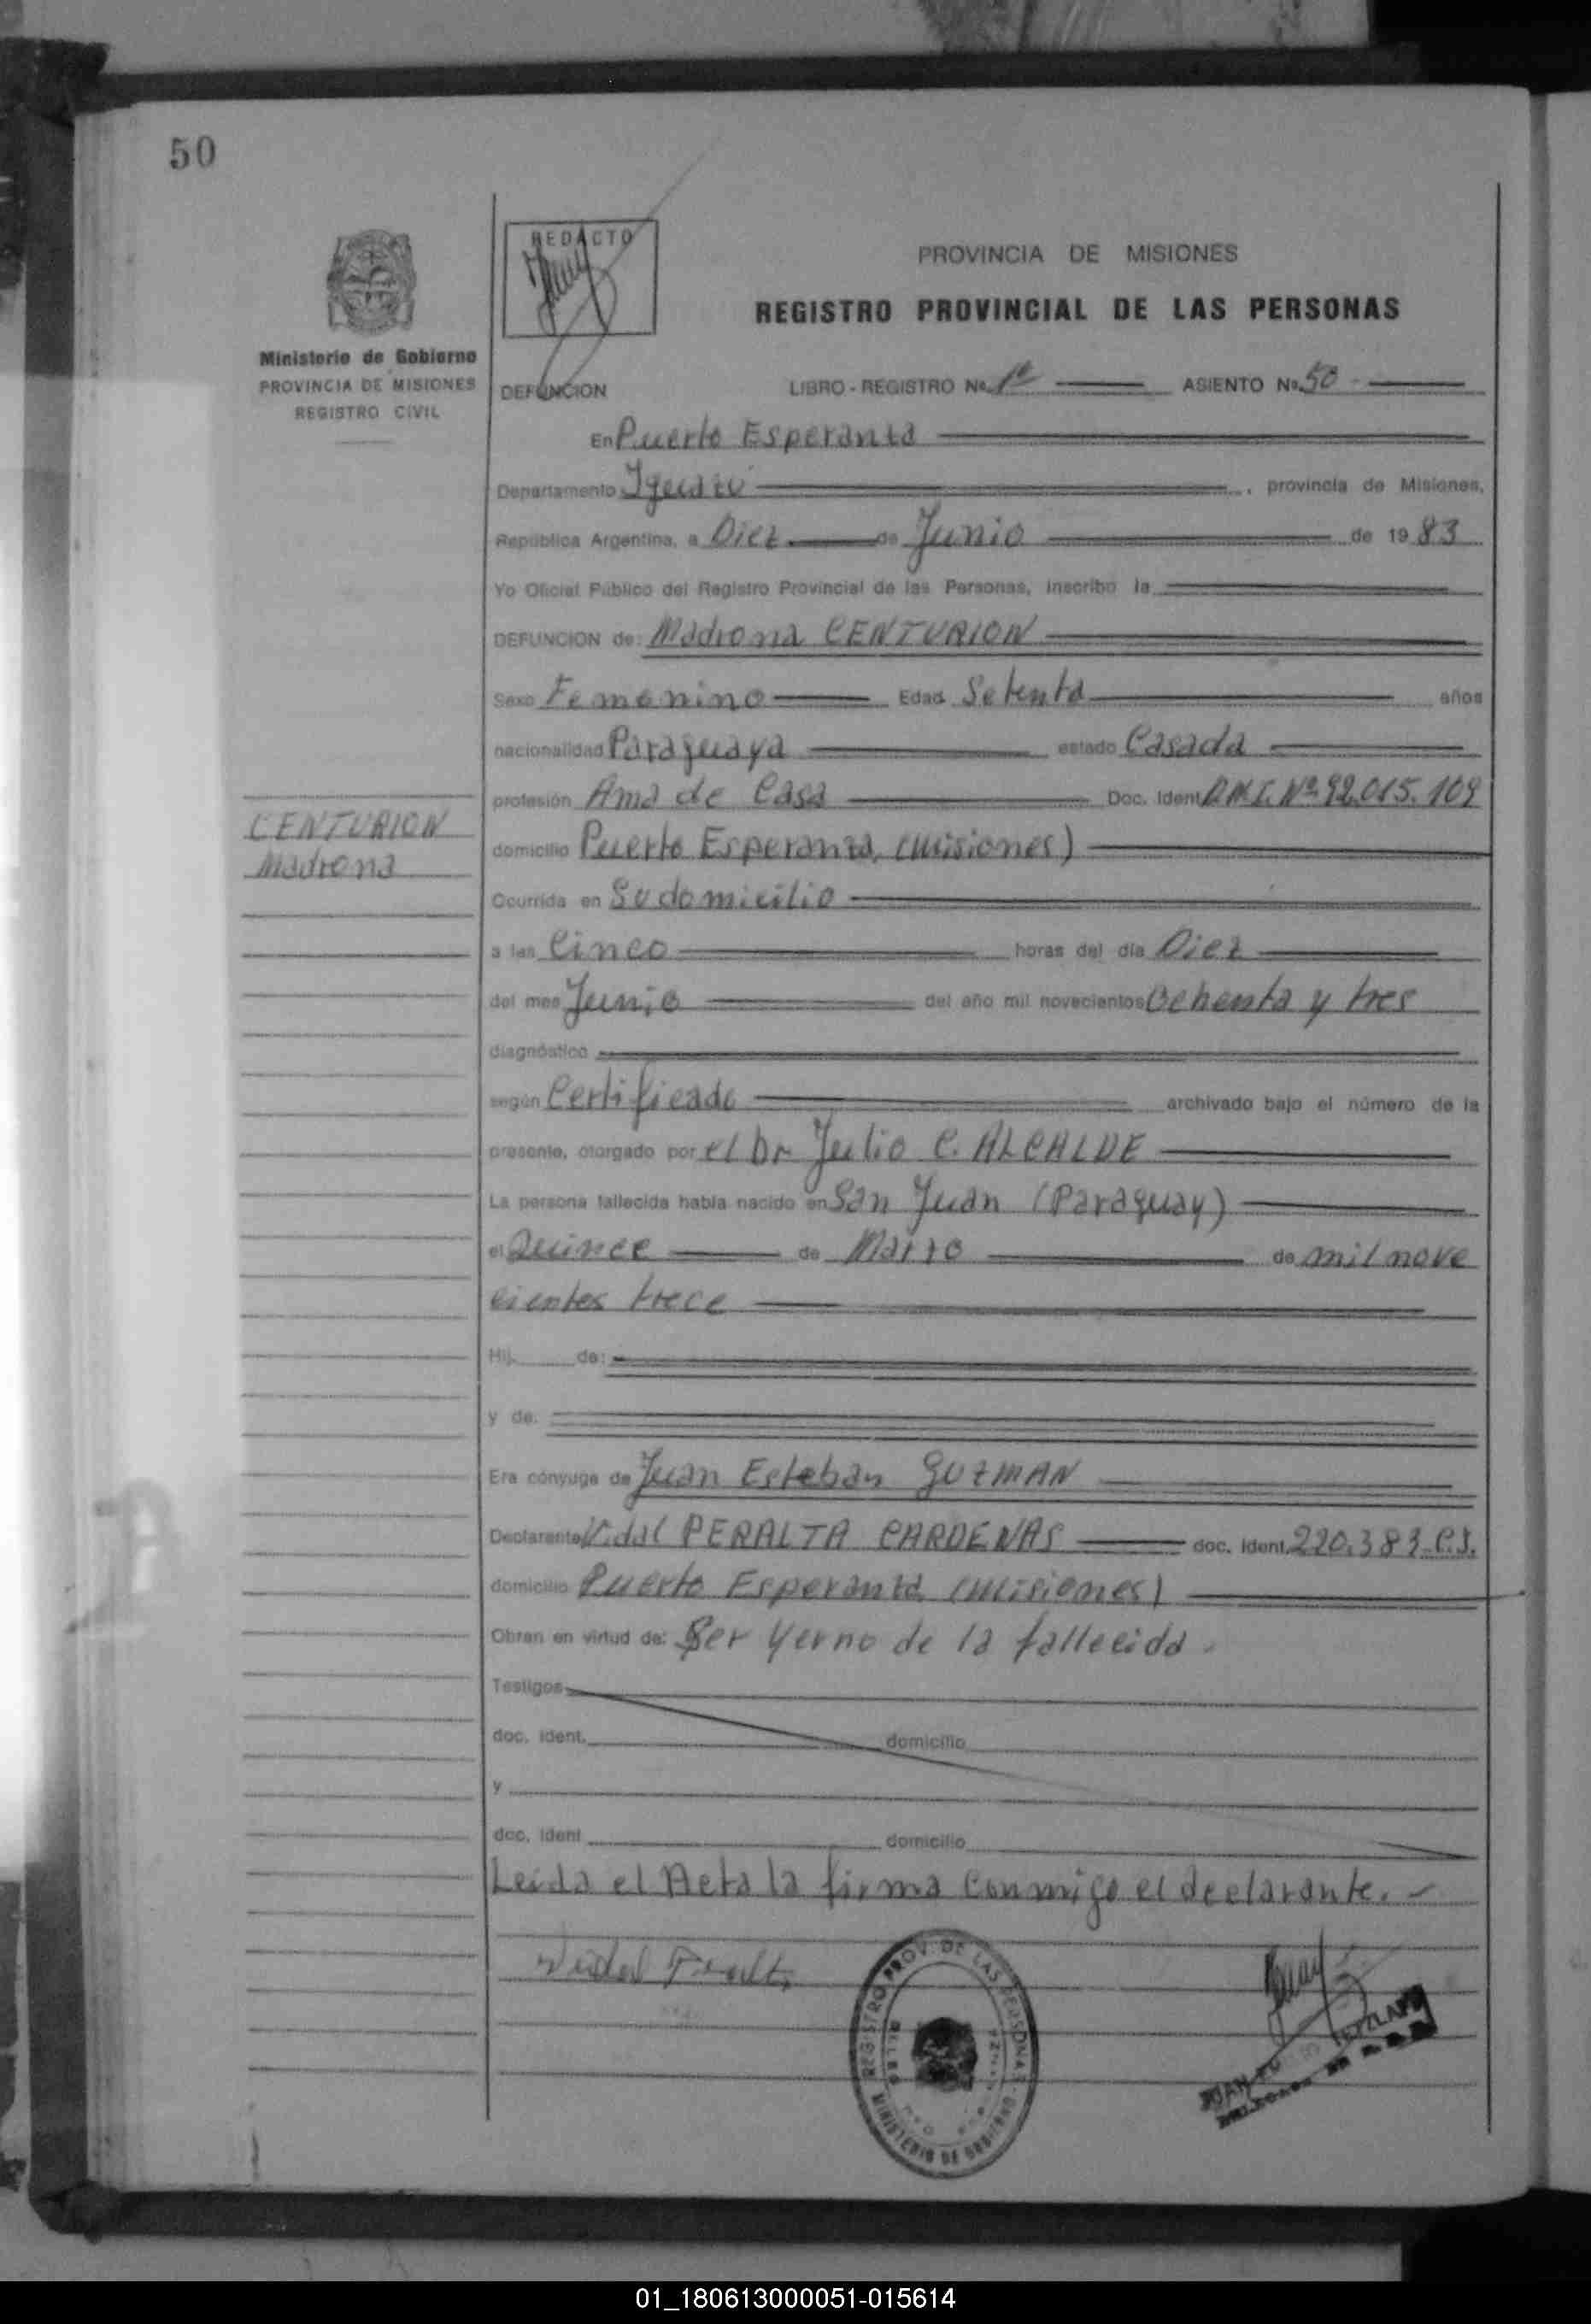 50
REDACTO
PROVINCIA DE MISIONES
REGISTRO PROVINCIAL DE LAS PERSONAS
Ministerio de Gobierno
PROVINCIA DE MISIONES
REGISTRO CIVIL
DEFUNCION LIBRO - REGISTRO No. 1º ASIENTO No. 50
En Puerto Esperanza
Departamento Iguazú, provincia de Misiones,
República Argentina, a Diez de Junio de 1983
Yo Oficial Público del Registro Provincial de las Personas, inscribo la
DEFUNCION de: Madrona CENTURION
Sexo Femenino Edad Setenta años
nacionalidad Paraguaya estado Casada
profesión Ama de Casa Doc. Ident. D.N.I. Nº 92.015.109
CENTURION
Madrona
domicilio Puerto Esperanza, (Misiones)
Ocurrida en Su domicilio
a las Cinco horas del día Diez
del mes Junio del año mil novecientos Ochenta y tres
diagnóstico
según Certificado archivado bajo el número de la
presente, otorgado por el Dr Julio C. ALCALDE
La persona fallecida había nacido en San Juan (Paraguay)
el Quince de Marzo de mil nove
cientos trece
Hij de:
y de:
Era cónyuge de Juan Esteban GUZMAN
Declarante Vidal PERALTA CARDENAS doc. ident. 220.383-C.I.
domicilio Puerto Esperanza (Misiones)
Obran en virtud de: Ser Yerno de la fallecida.
Testigos
doc. ident. domicilio
y
doc. ident domicilio
Leída el Acta la firma conmigo el declarante.-
REGISTRO PROV. DE LAS PERSONAS
MINISTERIO DE GOBIERNO
JUAN
01_180613000051-015614